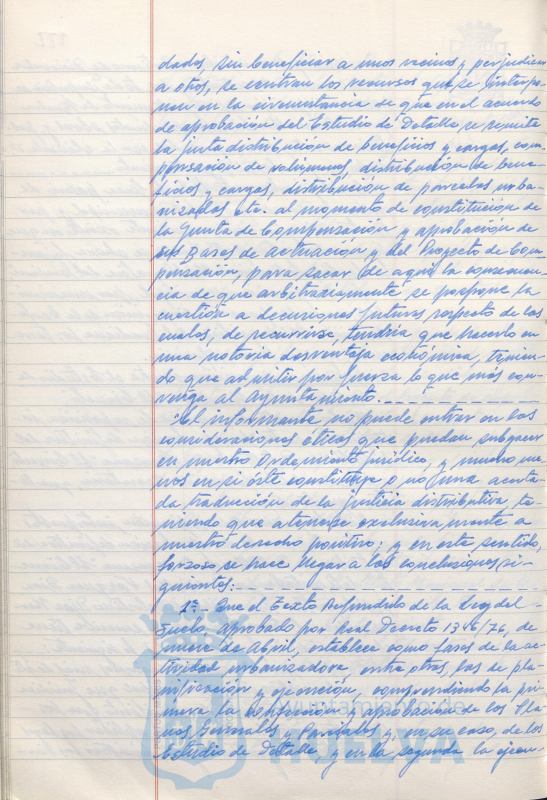 dados, sin beneficiar a unos vecinos y perjudicar
a otros, se centran los recursos que se interpo-
nen en la circunstancia de que en el acuerdo
de aprobación del Estudio de Detalle se remite
la justa distribución de beneficios y cargas, com-
pensación de volúmenes, distribución de bene-
ficios y cargas, distribución de parcelas urba-
nizadas etc. al momento de constitución de
la Junta de Compensación y aprobación de
sus Bases de actuación y del Proyecto de Com-
pensación, para sacar de aquí la consecuen-
cia de que arbitrariamente se pospone la
cuestión a decisiones futuras respecto de las
cuales, de recurrirse, tendría que hacerlo en
una notoria desventaja económica, tenien-
do que admitir por fuerza lo que más con-
venga al Ayuntamiento.
El informante no puede entrar en las
consideraciones éticas que puedan subyacer
en nuestro Ordenamiento jurídico, y mucho me-
nos en si éste constituye o no una acerta-
da traducción de la justicia distributiva, te-
niendo que atenerse exclusivamente a
nuestro derecho positivo; y en este sentido,
forzoso se hace llegar a las conclusiones si-
guientes:
1ª.- Que el Texto Refundido de la Ley del
Suelo, aprobado por Real Decreto 1346/76, de
nueve de Abril, establece como fases de la ac-
tividad urbanizadora, entre otras, las de pla-
nificación y ejecución, comprendiendo la pri-
mera la confección y aprobación de los Pla-
nes Generales y Parciales y, en su caso, de los
Estudios de Detalle, y en la segunda la ejecu-
Ayuntamiento de
HUELVA